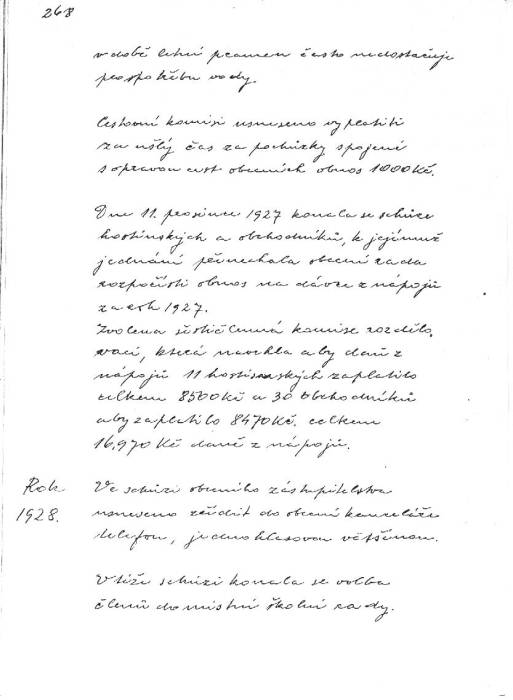 268
v době letní pramen často nedostačuje
pro spotřebu vody.
Cestovní komisi usneseno vyplatiti
za ušlý čas za pochůzky spojené
s opravou cest obecních obnos 1000 Kč.
Dne 11. prosince 1927 konala se schůze
hostinských a obchodníků, k jejímuž
jednání přenechala obecní rada
rozpočísti obnos na dávce z nápojů
za rok 1927.
Zvolena šestičlenná komise rozdělo,
vací, která navrhla aby daně z
nápojů 11 hostinských zaplatilo
celkem 8500 Kč a 30 obchodníků
aby zaplatilo 8470 Kč. celkem
16,970 Kč daně z nápojů.
Rok
1928.
Ve schůzi obecního zástupitelstva
usneseno zříditi do obecní kanceláře
telefon, jednohlasovou většinou.
V téže schůzi konala se volba
členů do místní školní rady.